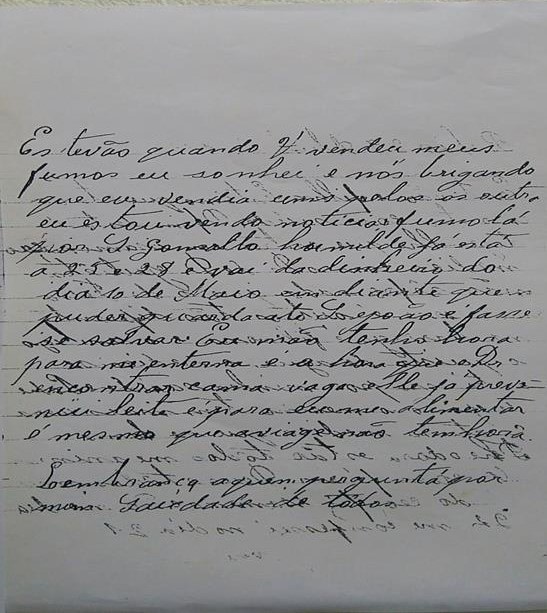 Estevão quando V vendeu meus
fumos eu sonhei e nós brigando
que eu vendia uns pelos os outro
eu estou vendo noticias fumo tá
S. Gonsallo humilde já está
a 25 e 28 e vai da dinheiro do
dia 10 de Maio em diante quem
puder guarda até e fasse
se salvar Eu não tenho hora
para me enterna é a hora que o Dr
encontrar cama vaga elle já preve-
niu leste é para eu me alimentar
é mesmo que viagem não tem hora.
Loembrança a quem pergunta por
mim Saudade de todos